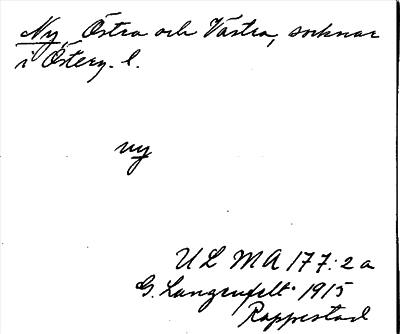 Ny, Östra och Västra, socknar
i Österg. l.
ny
ULMA 177:2a
G. Langenfelt 1915
Rappestad